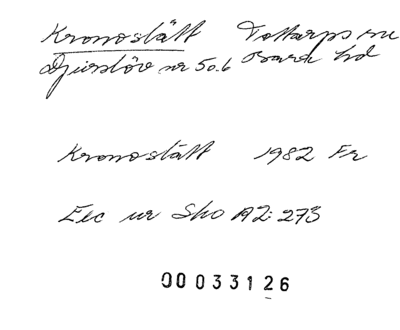 Kronostätt Tottarps sn
Djurslöv nr 50.6 Bara hd
Kronostätt 1982 Fr
Exc ur Sko A2:273
00033126